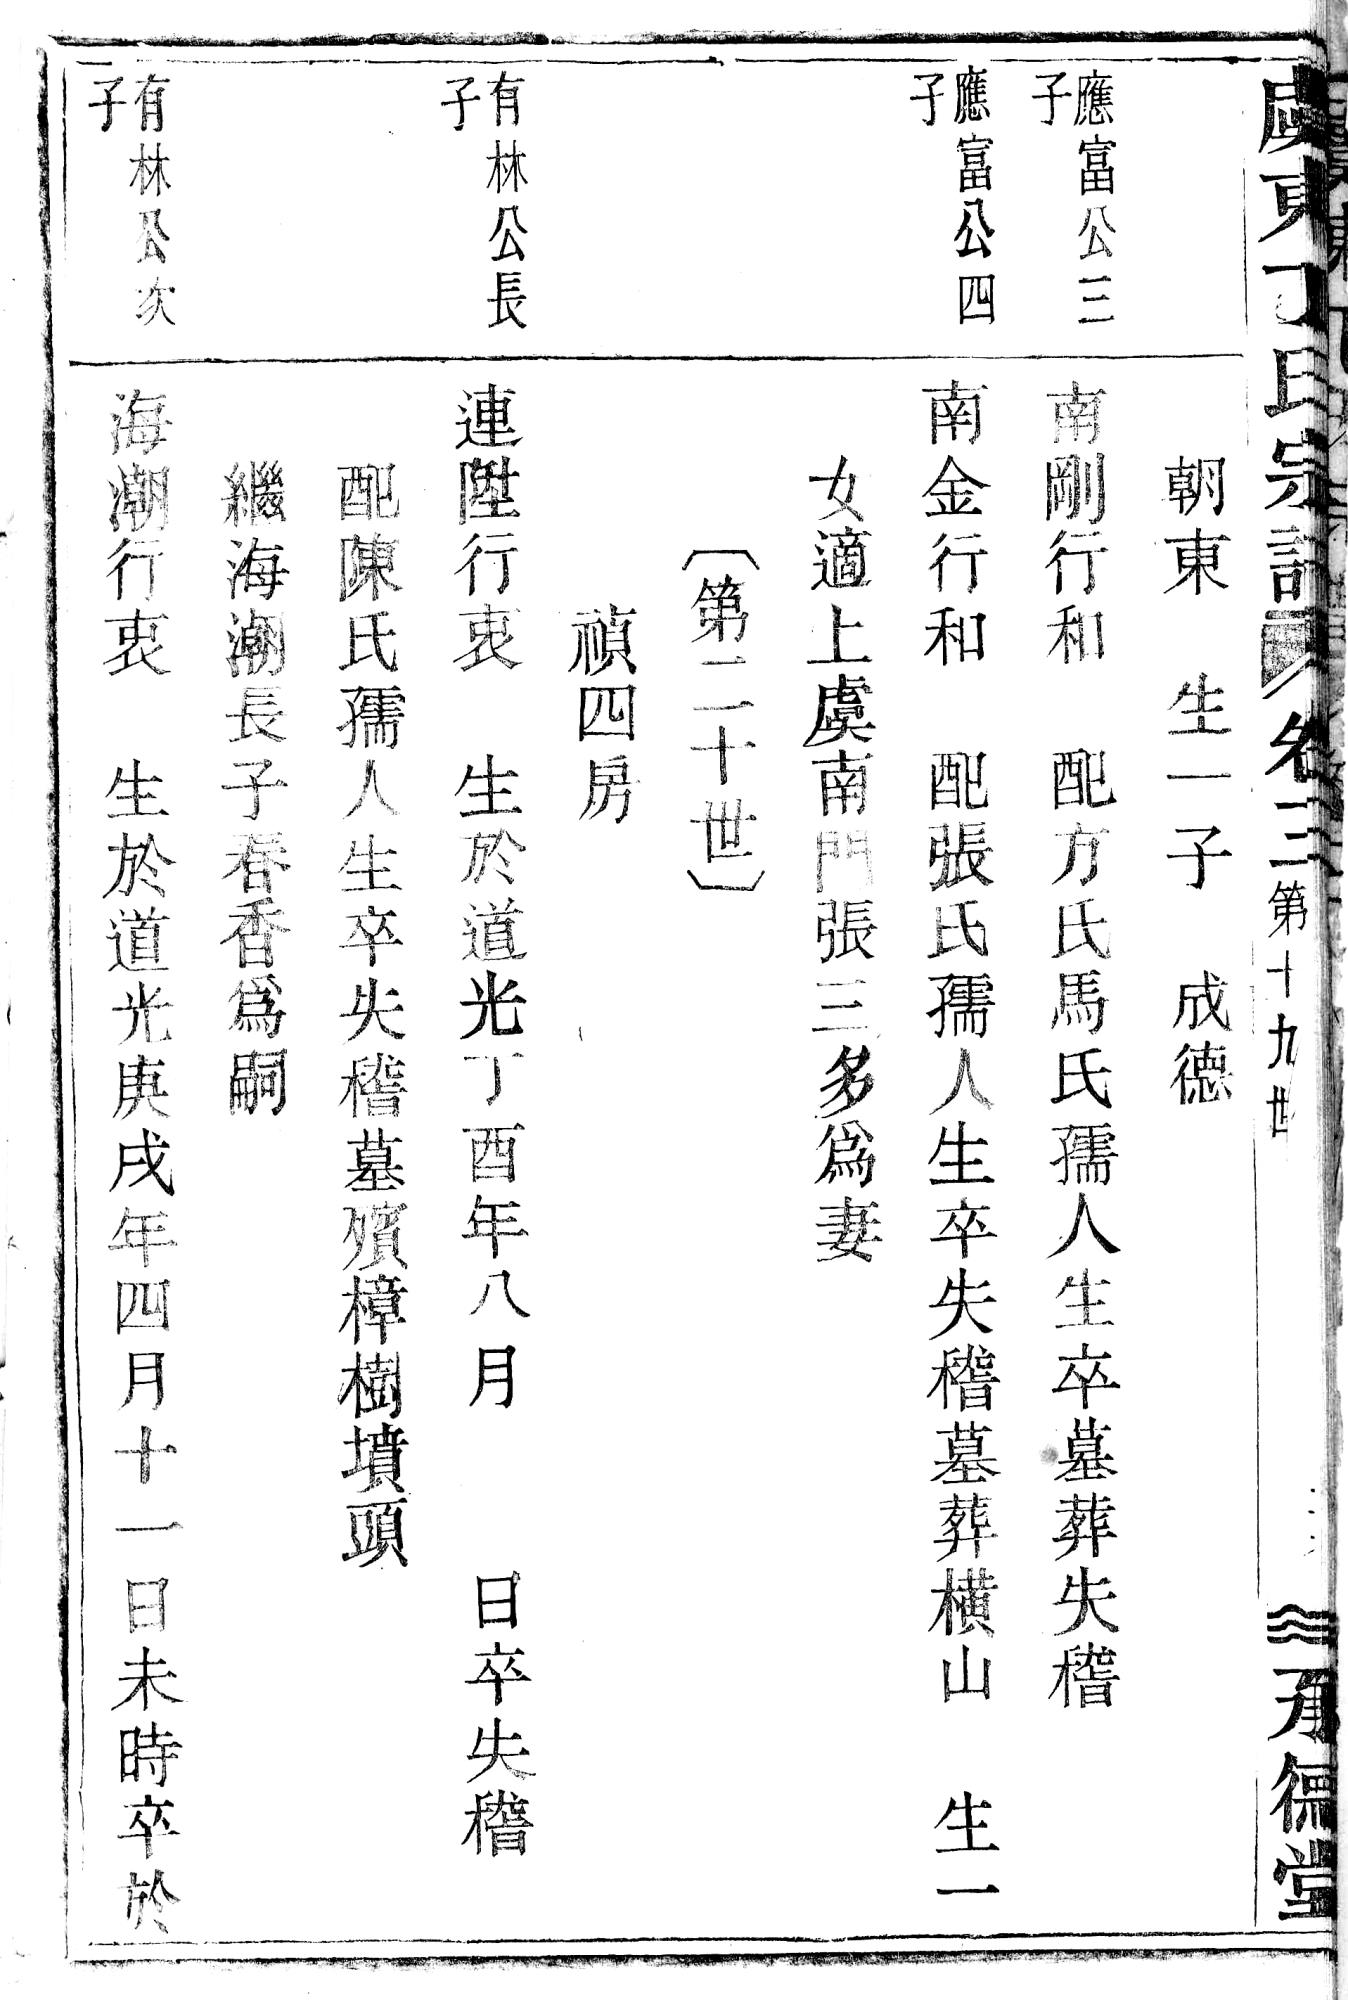 虞東丁氏宗譜 卷三 第十九世 承德堂
朝東 生一子 成德
應富公三子
南剛行和 配方氏馬氏孺人生卒墓葬失稽
應富公四子
南金行和 配張氏孺人生卒失稽墓葬橫山 生一
女適上虞南門張三多爲妻
〔第二十世〕
禎四房
有林公長子
連陞行衷 生於道光丁酉年八月 日卒失稽
配陳氏孺人生卒失稽墓殯樟樹墳頭
繼海潮長子春香爲嗣
有林公次子
海潮行衷 生於道光庚戌年四月十一日未時卒於